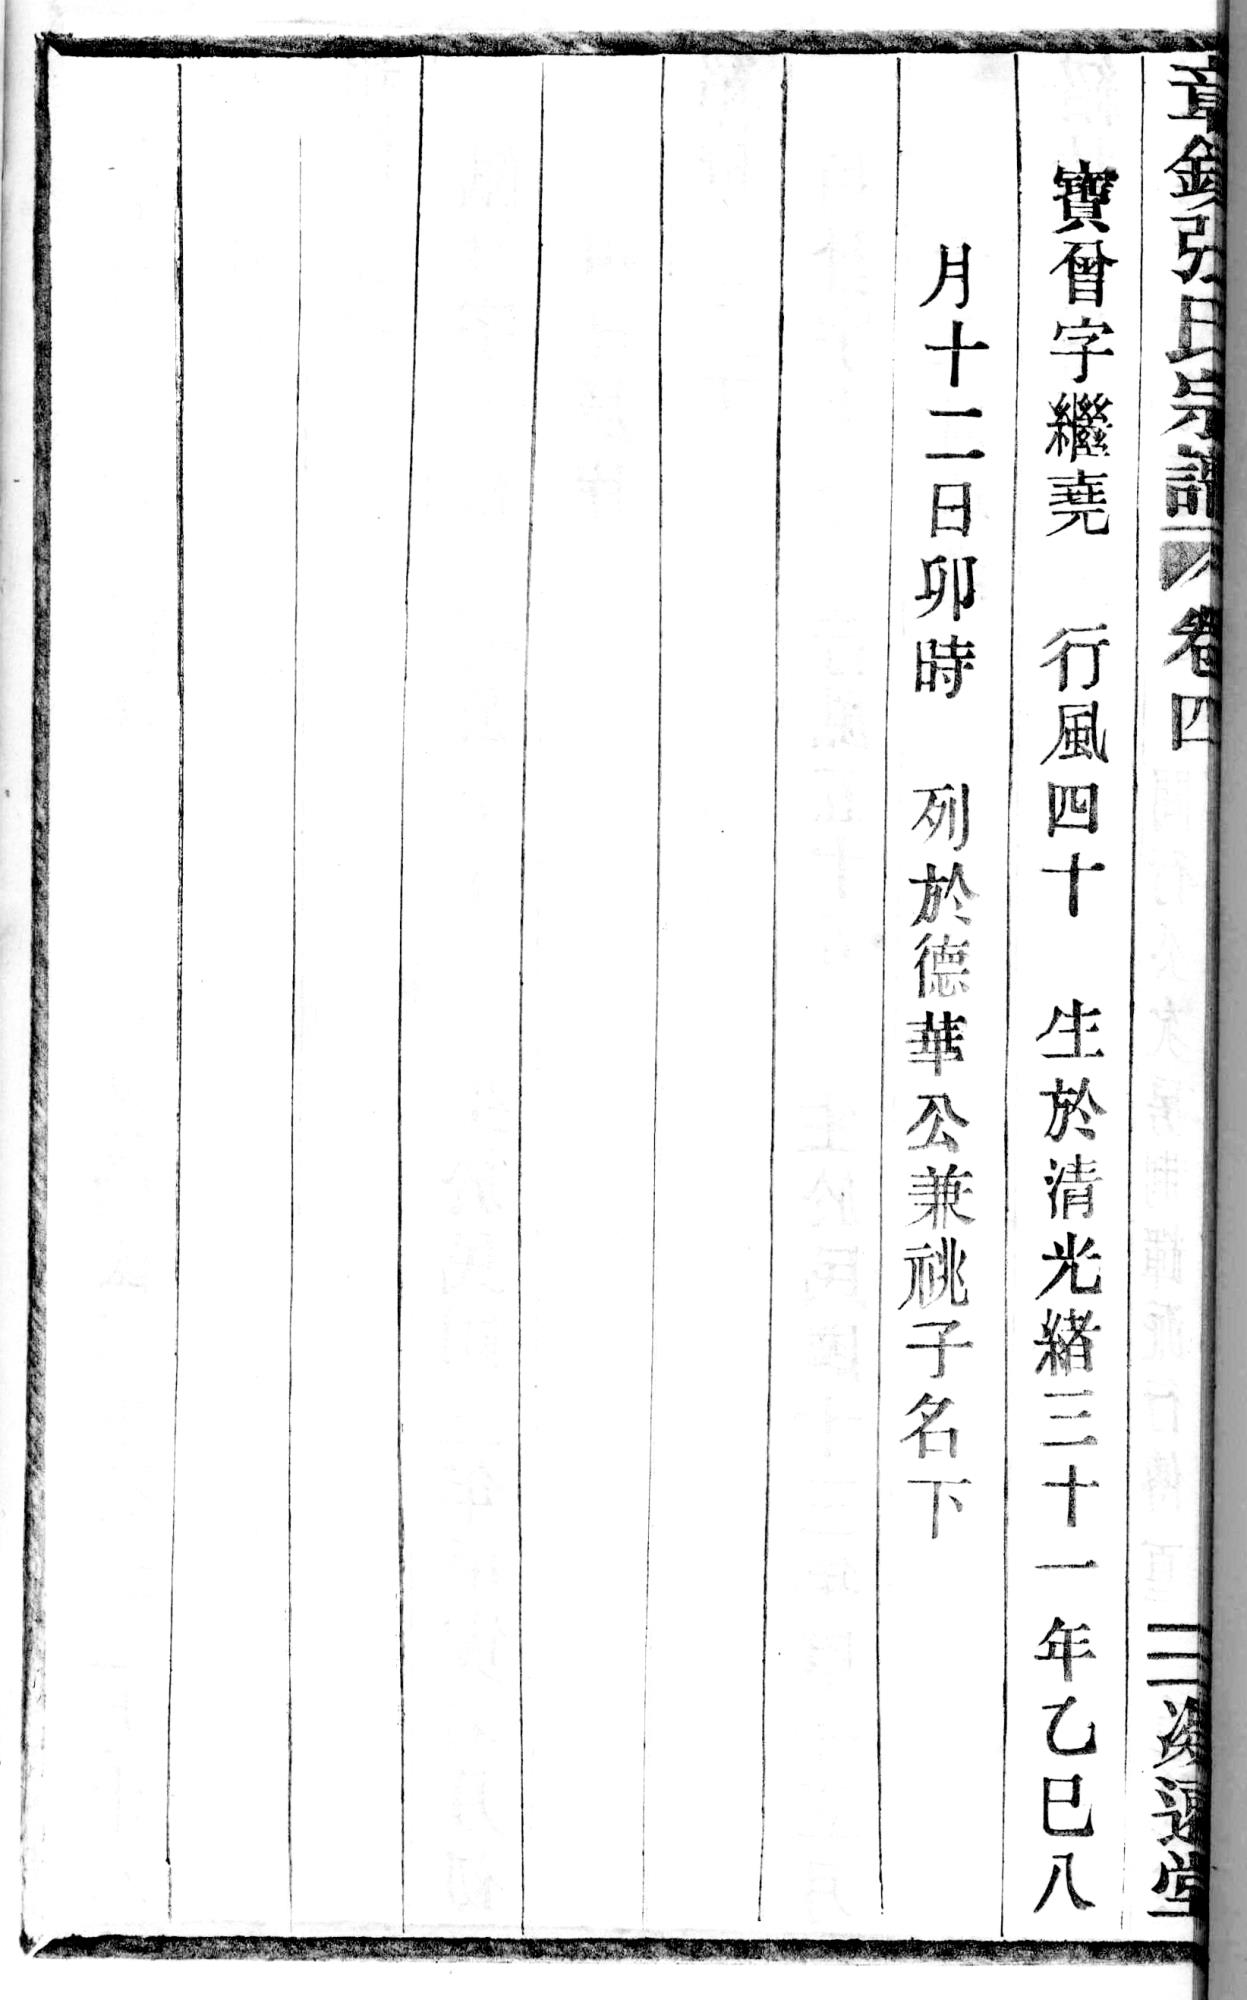 章鎮張氏宗譜 卷四 三 凝遠堂
寶曾字繼堯 行風四十 生於清光緒三十一年乙巳八
月十二日卯時 列於德華公兼祧子名下